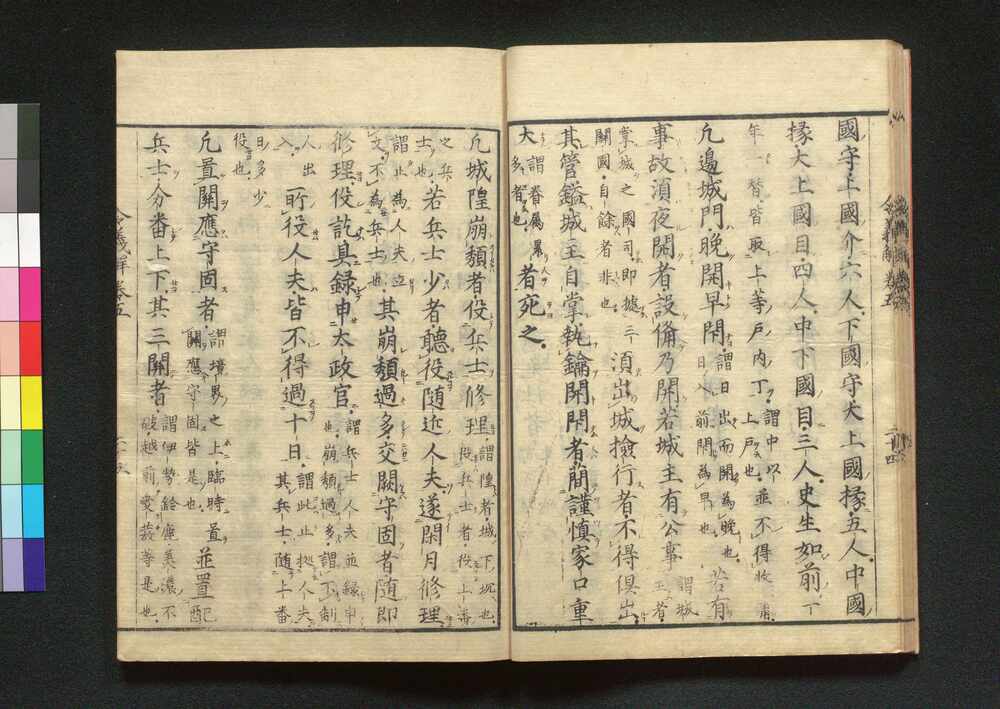 國守上國介六人下國守大上國掾五人中國
掾大上國目四人中下國目三人史生如前
年一替皆取上等戸内丁謂中以上戸也並不得收
凢邉城門晩開早閇謂日出而開為晩也日入前閇為早也若有
事故須夜開者設備乃開若城主有公事謂城主者
掌城之國司即據三關國自餘者非也須出城撿行者不得俱出
其管鎰城主自掌執鑰開閇者蕳謹慎家口重
大謂眷属累多者也者宛之
凢城隍崩頽者役兵士修理謂隍者城下坑也役兵士者役上番
之兵士也若兵士少者聽役随近人夫逐閑月修理
謂止為人夫立文不為兵士也其崩頽過多交闕守固者随即
修理役訖具録申太政官謂兵士人夫並録申也崩頽過多謂不制
人出入所役人夫皆不得過十日謂此止據人夫其兵士随上番
日多少役也
凢置關應守固者謂境界之上臨時置關應守固皆是也並置配
兵士分番上下其三關者謂伊勢鈴鹿美濃不破越前愛發等是也
令義解 卷五